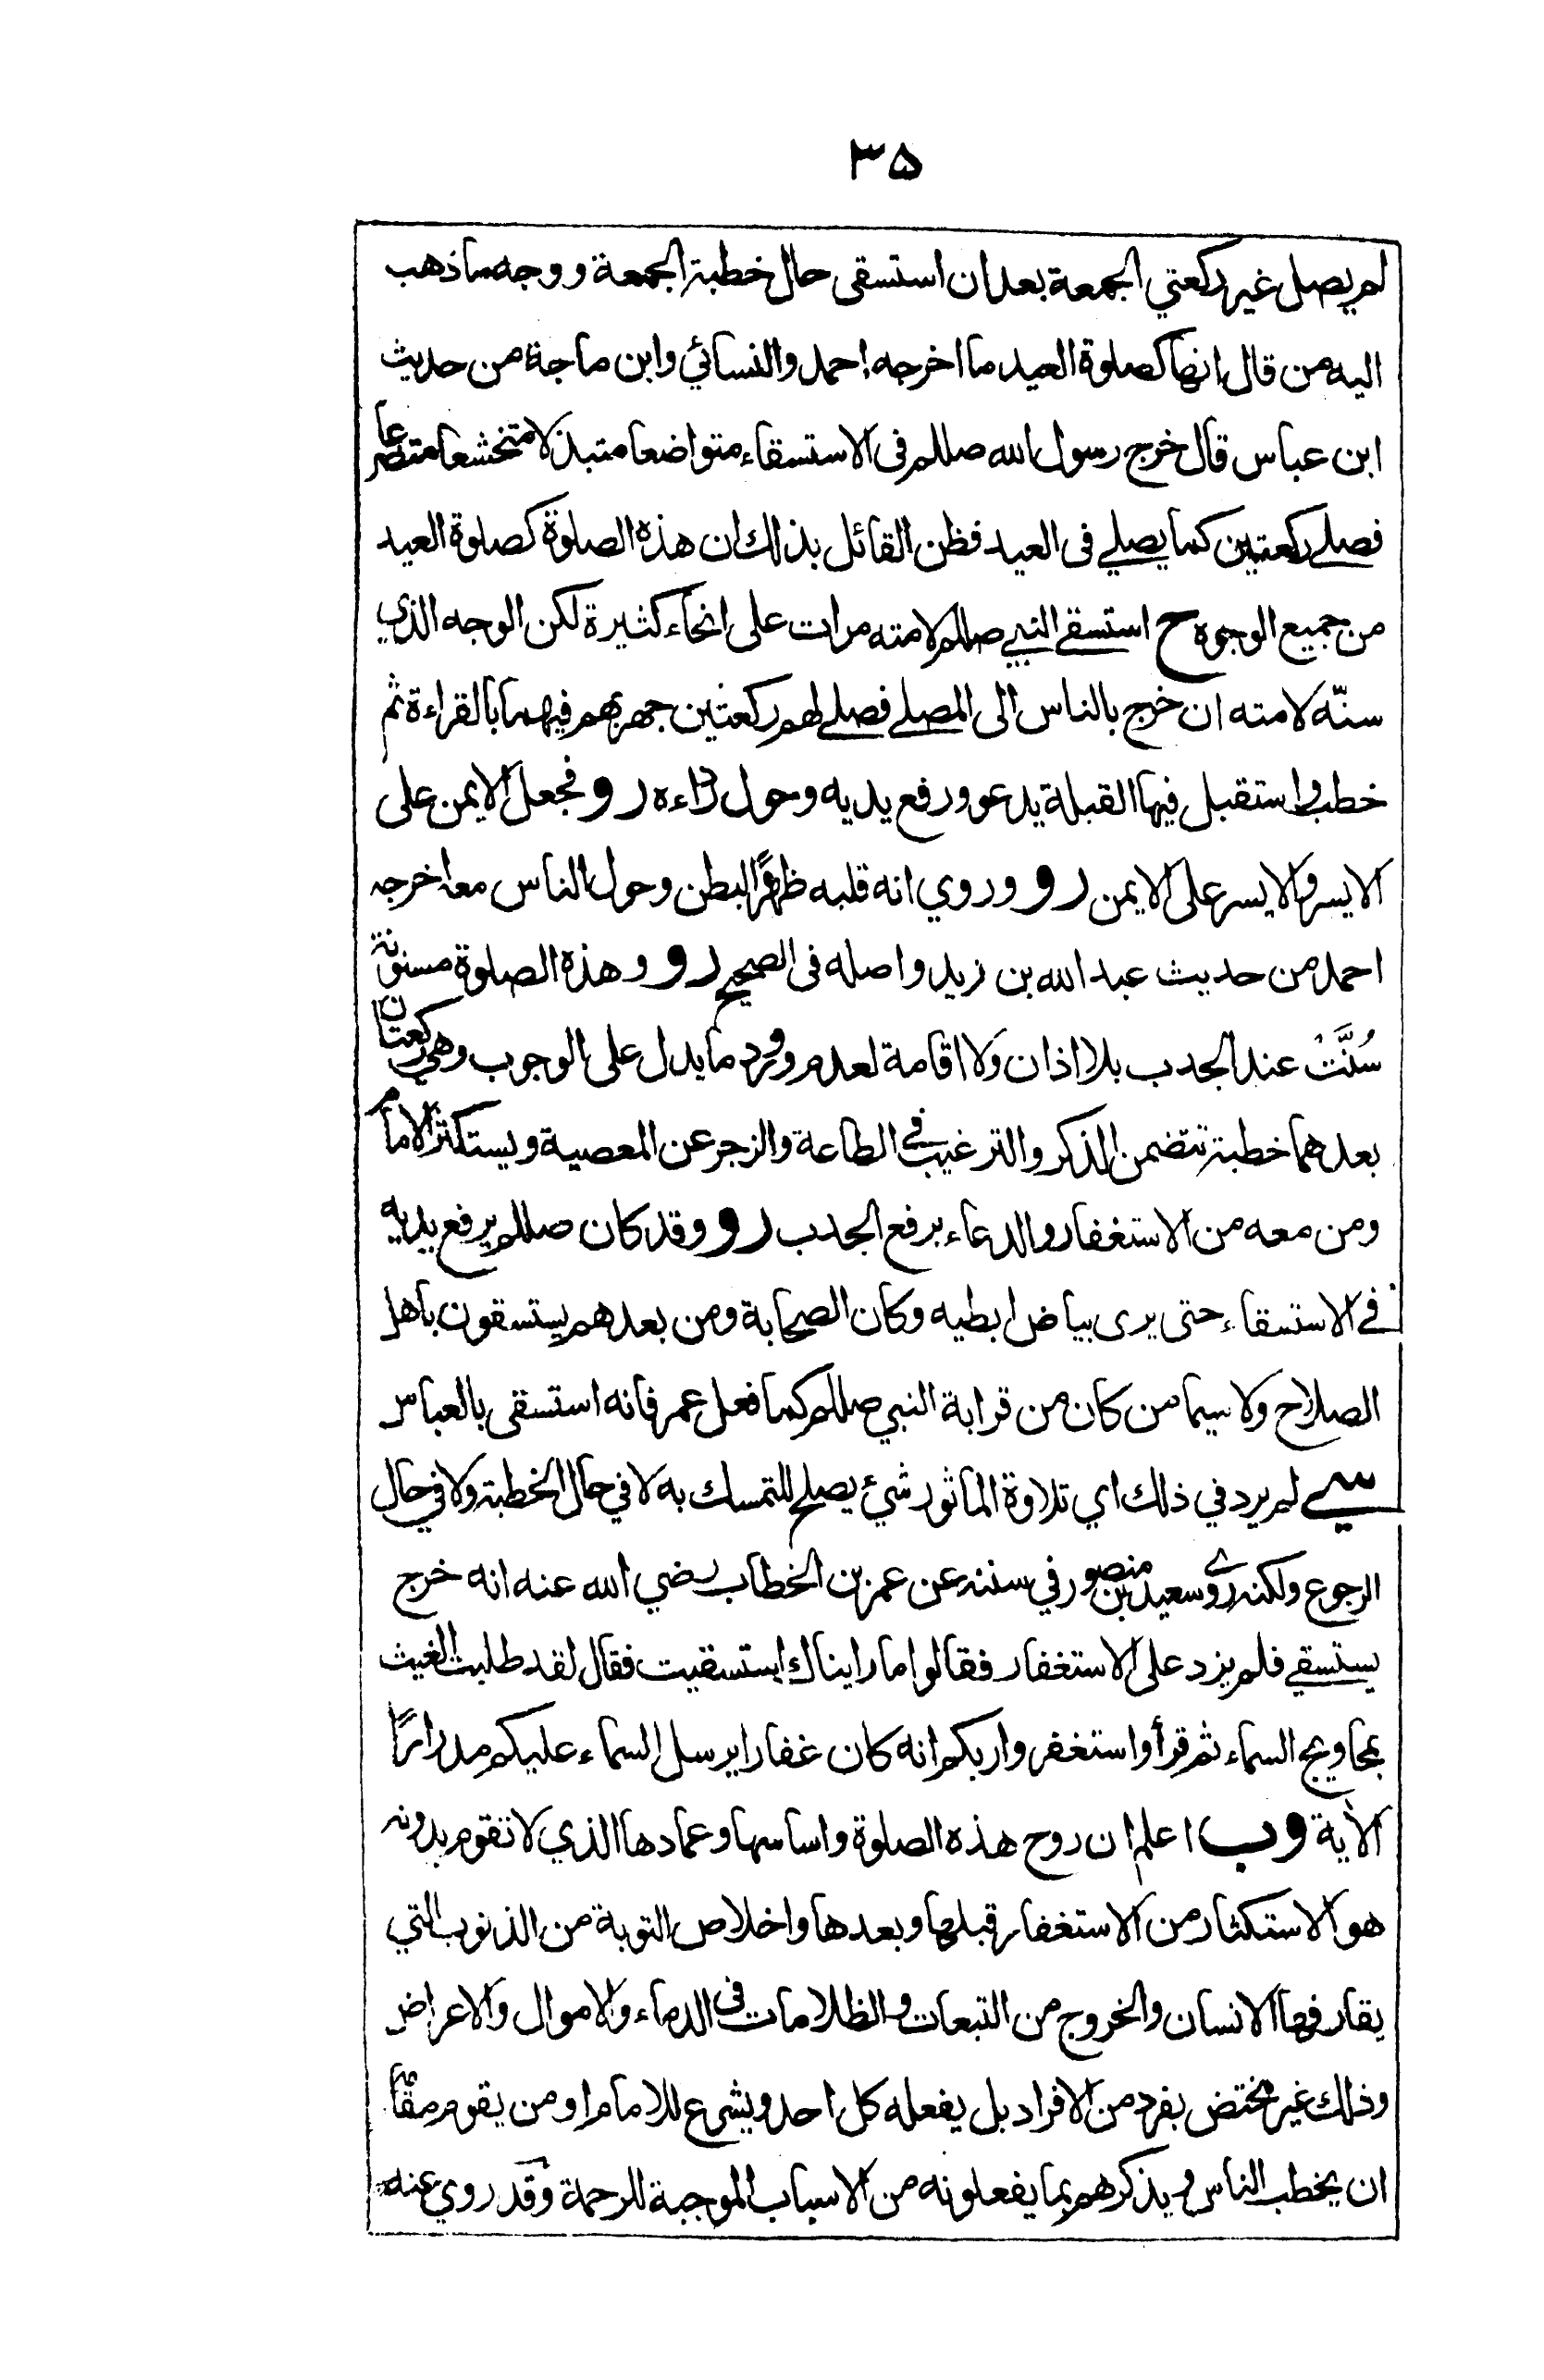 ٣٥
لم يصل غير ركعتي الجمعة بعد ان استسقى حال خطبة الجمعة ووجه ما ذهب
اليه من قال انها كصلوة العيد ما اخرجه احمد والنسائي وابن ماجة من حديث
ابن عباس قال خرج رسول الله صللم فى الاستسقاء متواضعا متبذلا متخشعا متضرعا
فصلے ركعتين كما يصلے فى العيد فظن القائل بذلك ان هذه الصلوة كصلوة العيد
من جميع الوجوه ح استسقے النبے صللم لامته مرات على انحاء كثيرة لكن الوجه الذي
سنّه لامته ان خرج بالناس الى المصلے فصلے لهم ركعتين جهر بهم فيهما بالقراءة ثم
خطب واستقبل فيها القبلة يدعو ورفع يديه وحول رداءه رو فجعل الايمن على
الايسر والايسر على الايمن رو وروي انه قلبه ظهرًا لبطن وحول الناس معه اخرجه
احمد من حديث عبد الله بن زيد واصله فى الصحيح رو وهذه الصلوة مسنونة
سُنَّتْ عند الجدب بلا اذان ولا اقامة لعدم ورود ما يدل على الوجوب وهي ركعتان
بعدهما خطبة تتضمن الذكر والترغيب في الطاعة والزجر عن المعصية ويستكثر الامام
ومن معه من الاستغفار والدعاء برفع الجدب رو وقد كان صللم يرفع يديه
فے الاستسقاء حتى يرى بياض ابطيه وكان الصحابة ومن بعدهم يستسقون باهل
الصلاح ولا سيما من كان من قرابة النبي صللم كما فعل عمر فانه استسقى بالعباس
سے لم يرد في ذلك اي تلاوة الماثور شيء يصلح للتمسك به لا في حال الخطبة ولا في حال
الرجوع ولكنه روے سعيد بن منصور في سننه عن عمر بن الخطاب رضي الله عنه انه خرج
يستسقے فلم يزد على الاستغفار فقالوا ما رايناك استسقيت فقال لقد طلبت الغيث
بمجاويح السماء ثم قرأ واستغفروا ربكم انه كان غفارا يرسل السماء عليكم مدرارًا
الأية وب اعلم ان روح هذه الصلوة واساسها وعمادها الذي لا تقوم بدونه
هو الاستكثار من الاستغفار قبلها وبعدها واخلاص التوبة من الذنوب التي
يقارفها الانسان والخروج من التبعات والظلامات فى الدماء والاموال والاعراض
وذلك غير مختص بفرد من الافراد بل يفعله كل احد ويشرع للامام او من يقوم مقامه
ان يخطب الناس ويذكرهم بما يفعلونه من الاسباب الموجبة للرحمة وقد روي عنه